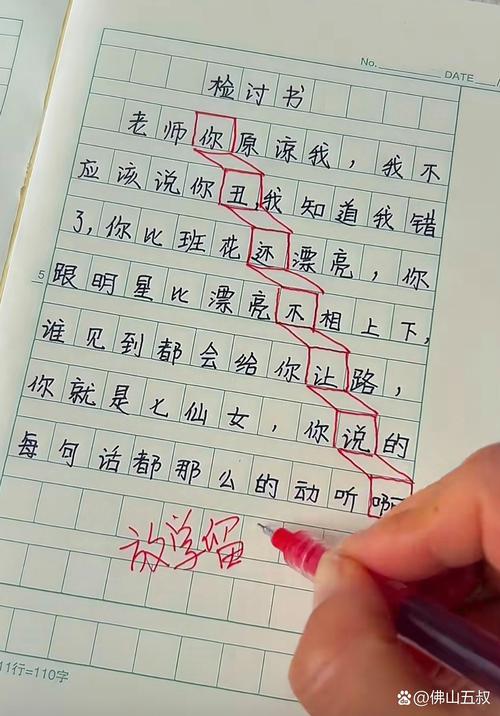 No.
DATE
检讨书
老师你原凉我，我不
应该说你丑，我知道我错
了，你比班花还漂亮，你
5
跟明星比漂亮不相上下，
谁见到都会给你让路，
你就是七仙女，你说的
每句话都那么的动听啊
放学留
11行=110字
@佛山五叔